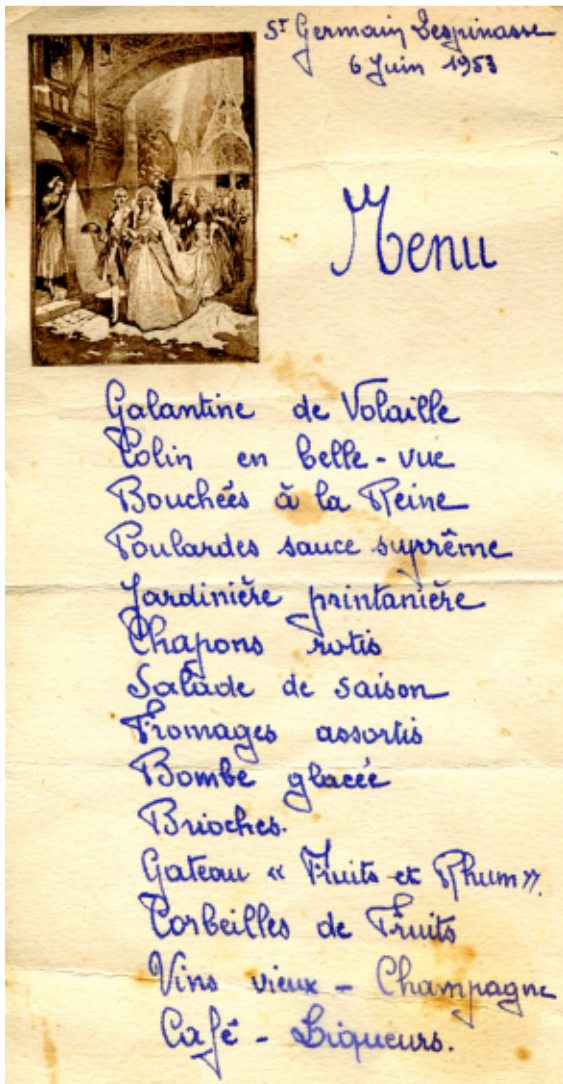 St Germain Lespinasse
6 Juin 1953
Menu
Galantine de Volaille
Colin en belle-vue
Bouchées à la Reine
Poulardes sauce suprême
Jardinière printanière
Chapons rotis
Salade de saison
Fromages assortis
Bombe glacée
Brioches.
Gateau « Fruits et Rhum ».
Corbeilles de Fruits
Vins vieux - Champagne
Café - Liqueurs.